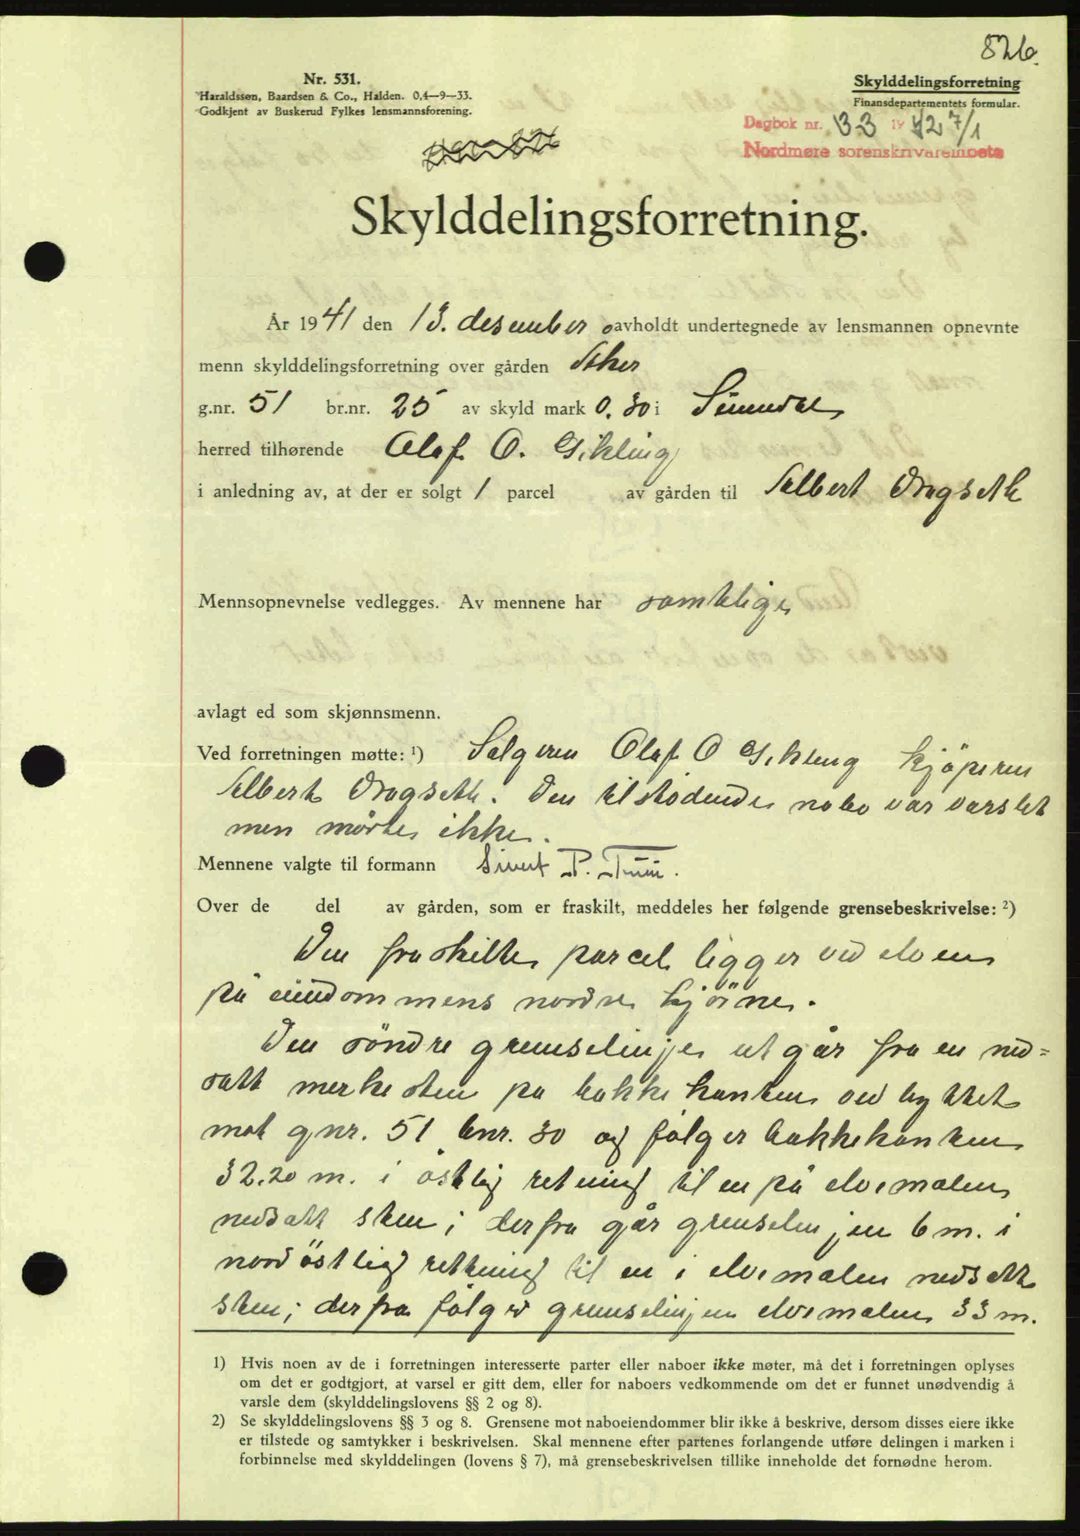 826.
Nr. 531.
Haraldssøn, Baardsen & Co., Halden. 0,4—9—33.
Godkjent av Buskerud Fylkes lensmannsforening.
Skylddelingsforretning
Finansdepartementets formular.
Dagbok nr. 33 1942 7/1
Nordmøre sorenskriverembete
Skylddelingsforretning.
År 1941 den 13. desember avholdt undertegnede av lensmannen opnevnte
menn skylddelingsforretning over gården
g.nr. 51 br.nr. 25 av skyld mark 0.30 i Sunndal
herred tilhørende Olaf O. Gikling
i anledning av, at der er solgt 1 parcel av gården til Albert Dragseth
Mennsopnevnelse vedlegges. Av mennene har samtlige
avlagt ed som skjønnsmenn.
Ved forretningen møtte: ¹) Selgeren Olaf O Gikling kjøperen
Albert Dragseth. Den tilstødende nabo var varslet
men møtte ikke.
Mennene valgte til formann Sivert P.
Over de del av gården, som er fraskilt, meddeles her følgende grensebeskrivelse: ²)
Den fraskilte parcel ligger ved elven
på eiendommens nordre hjørne.
Den søndre grenselinje utgår fra en ned=
satt merkesten på bakkekanten ved byttet
mot gnr. 51 bnr. 30 og følger bakkekanten
32.20 m. i østlig retning til en på elvemælen
nedsatt sten; derfra går grenselinjen 6 m. i
nordøstlig retning til en i elvemælen nedsatt
sten; derfra følger grenselinjen elvemælen 33 m.
1) Hvis noen av de i forretningen interesserte parter eller naboer ikke møter, må det i forretningen oplyses
om det er godtgjort, at varsel er gitt dem, eller for naboers vedkommende om det er funnet unødvendig å
varsle dem (skylddelingslovens §§ 2 og 8).
2) Se skylddelingslovens §§ 3 og 8. Grensene mot naboeiendommer blir ikke å beskrive, dersom disses eiere ikke
er tilstede og samtykker i beskrivelsen. Skal mennene efter partenes forlangende utføre delingen i marken i
forbinnelse med skylddelingen (lovens § 7), må grensebeskrivelsen tillike inneholde det fornødne herom.